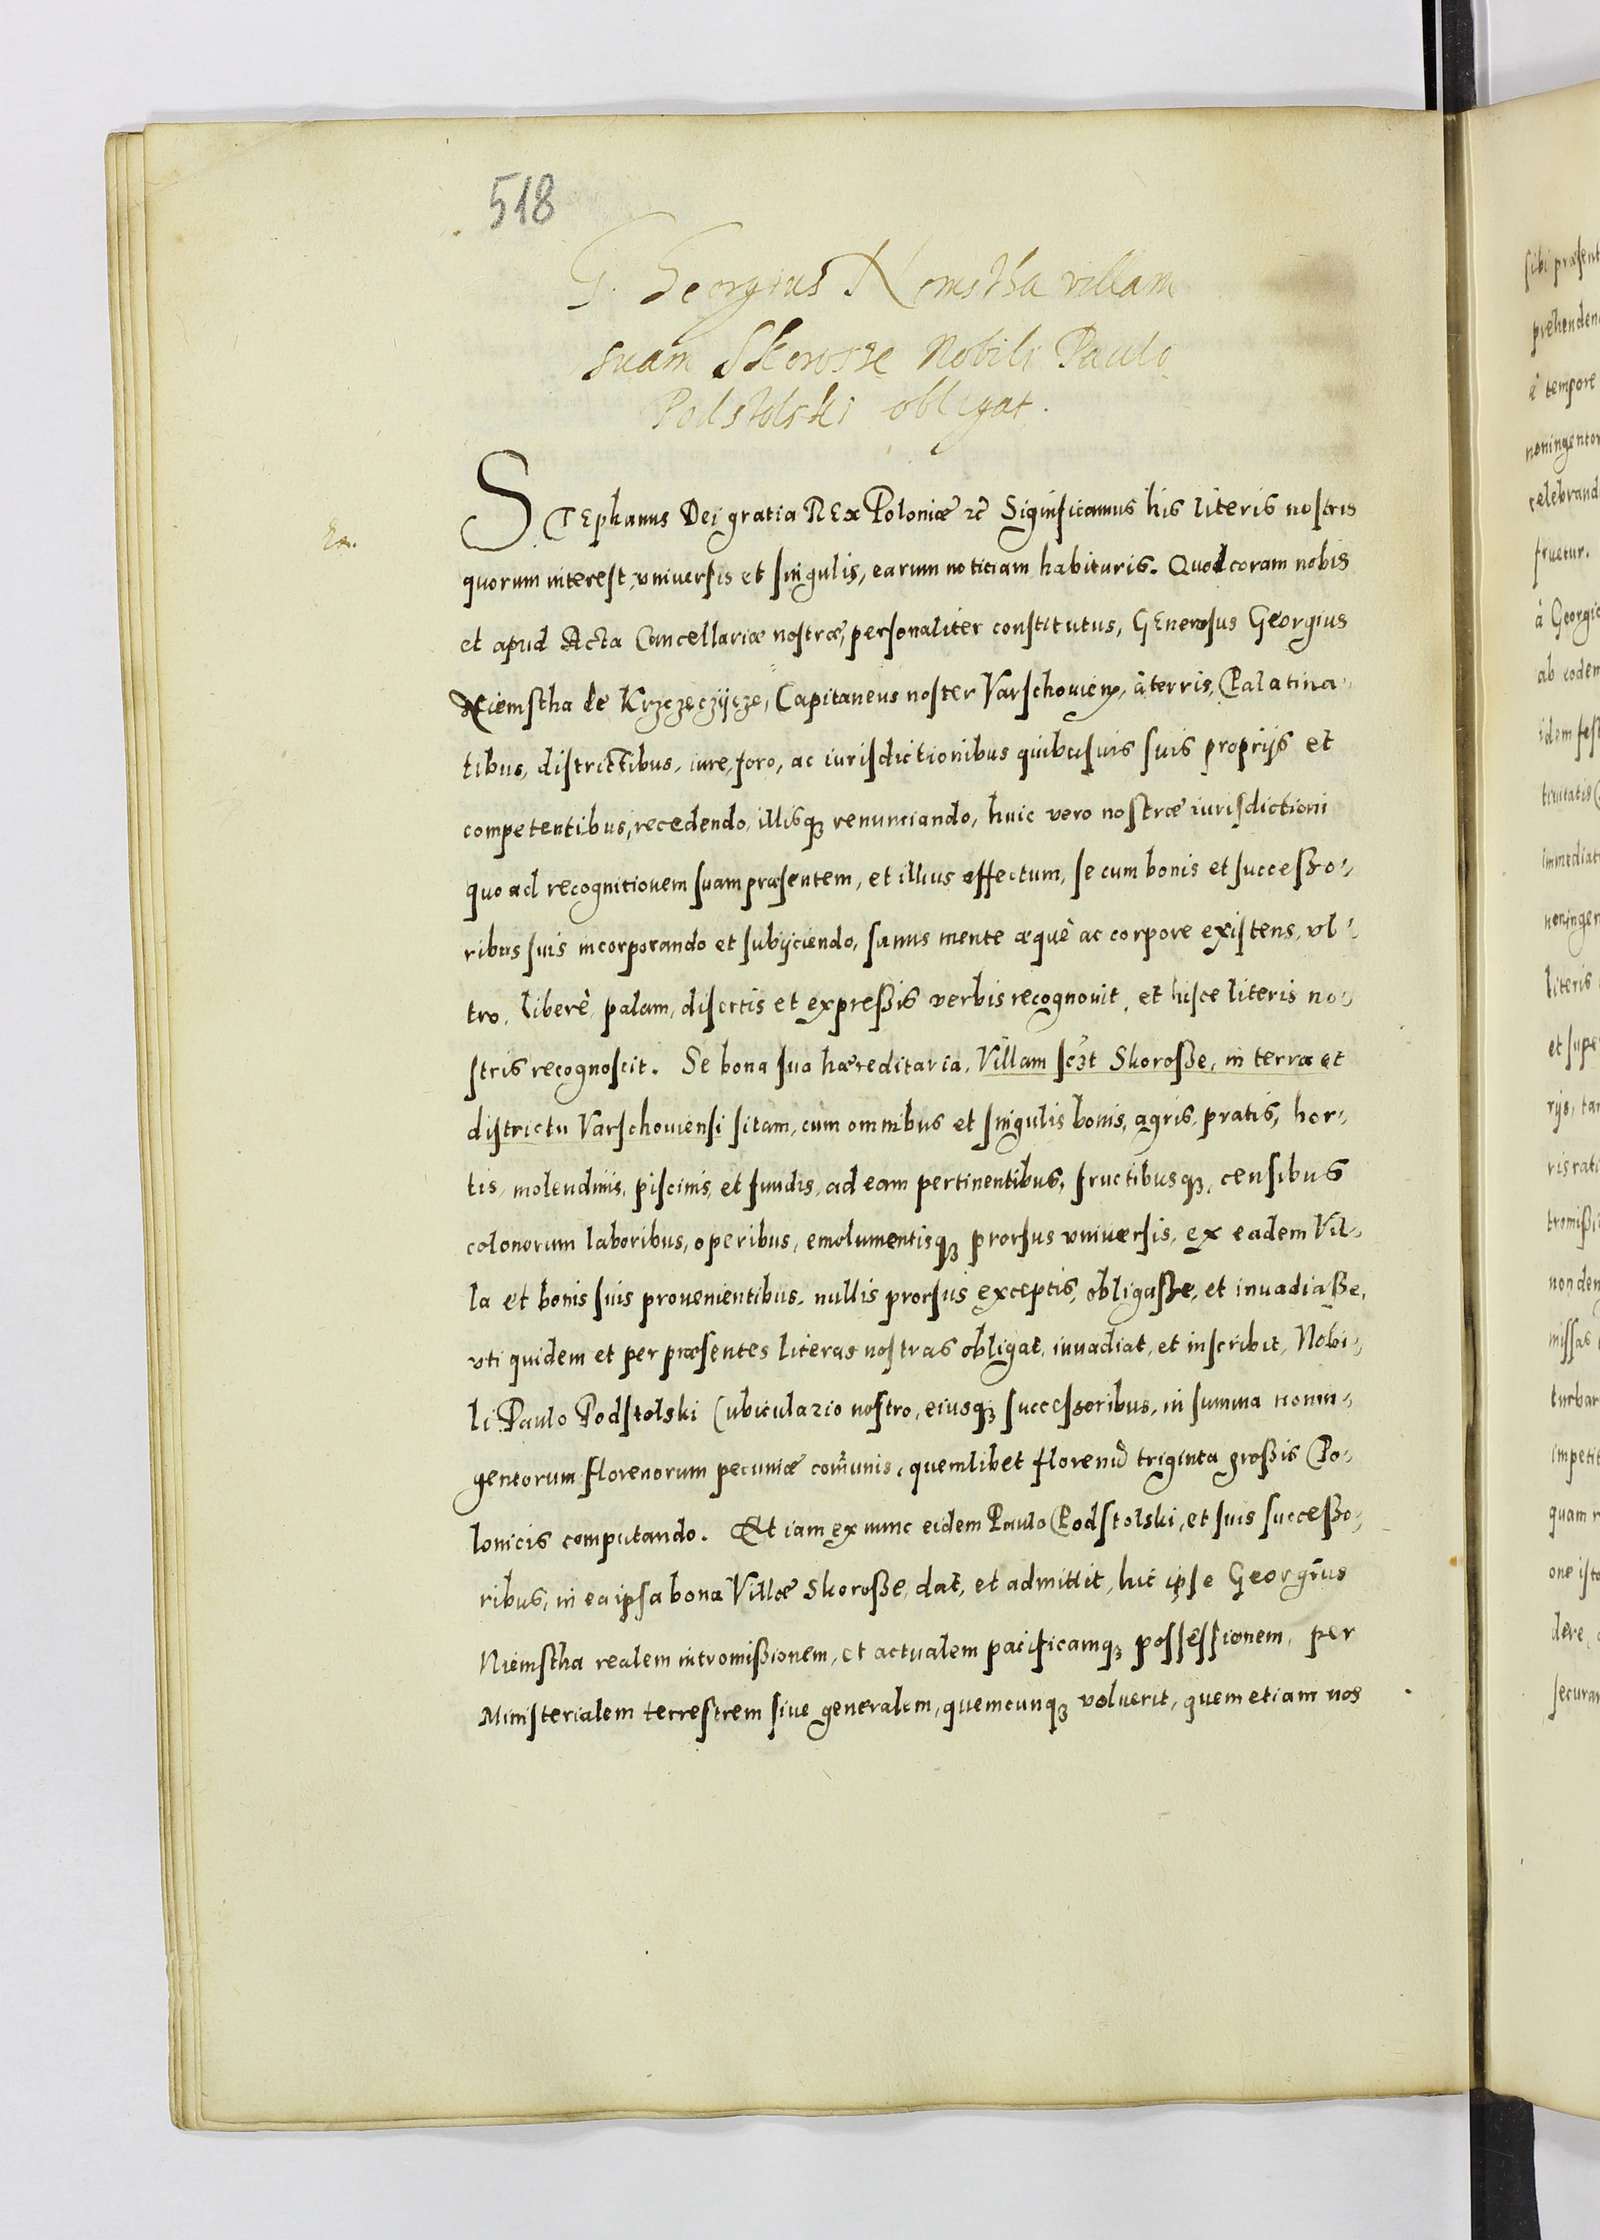 518
G. Georgius Niemstha villam
suam Skorosze Nobili Paulo
Podstolski obligat.
Ex.
STEphanus Dei gratia REx Poloniæ etc Significamus his literis nostris
quorum interest, vniuersis et singulis, earum noticiam habituris. Quod coram nobis
et apud Acta Cancellariæ nostræ, personaliter constitutus, GEnerosus Georgius
Niemstha de Krzczęczÿcze, Capitaneus noster Varschouien, à terris, Palatina-
tibus, districtibus, iure, foro, ac iurisdictionibus quibusuis suis proprijs et
competentibus, recedendo, illisqꝫ renunciando, huic vero nostræ iurisdictioni
quo ad recognitionem suam præsentem, et illius effectum, se cum bonis et successo-
ribus suis incorporando et subijciendo, sanus mente æquè ac corpore existens, vl-
tro, liberè, palam, disertis et expreßis verbis recognouit, et hisce literis no-
stris recognoscit. Se bona sua hæreditaria, Villam sczt Skoroße, in terra et
districtu Varschouiensi sitam, cum omnibus et singulis bonis, agris, pratis, hor-
tis, molendinis, piscinis, et fundis, ad eam pertinentibus, fructibusqꝫ, censibus
colonorum laboribus, operibus, emolumentisqꝫ prorsus vniuersis, ex eadem Vil-
la et bonis suis prouenientibus, nullis prorsus exceptis, obligaße, et inuadiaße,
vti quidem et per præsentes literas nostras obligat, inuadiat, et inscribit, Nobi-
li Paulo Podstolski Cubiculario nostro, eiusqꝫ successoribus, in summa nonin-
gentorum florenorum pecuniæ com̃unis, quemlibet florenũ triginta großis Po-
lonicis computando. Et iam ex nunc eidem Paulo Podstolski, et suis succeßo-
ribus, in ea ipsa bona Villæ Skoroße, dat, et admittit, hic ipse Georgius
Niemstha realem intromißionem, et actualem pacificamqꝫ possessionem, per
Ministerialem terrestrem siue generalem, quemcunqꝫ voluerit, quem etiam nos